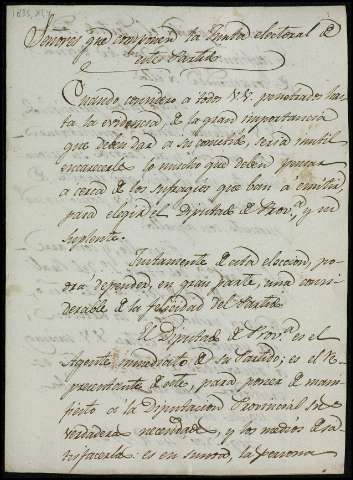 Señores que componen la Junta electoral de
este Partido
Cuando considero a todos VV. penetrados has-
ta la evidencia de la gran importancia
que deben dar a su cometido, seria inutil
encarecerle lo mucho que deben pensar
a cerca de los sufragios que ban a emitir,
para elegir el Diputado de Prov.ª y su
suplente.
Justamente de esta eleccion, po-
drá depender, en gran parte, una consi-
derable de la felicidad del Partido.
El Diputado de Prov.ª es el
Agente inmediato de su Partido; es el Re-
presentante de este, para poner de mani-
fiesto a la Diputacion Provincial sus
verdaderas necesidades, y los medios de sa-
tisfacerlas: es en suma, la persona